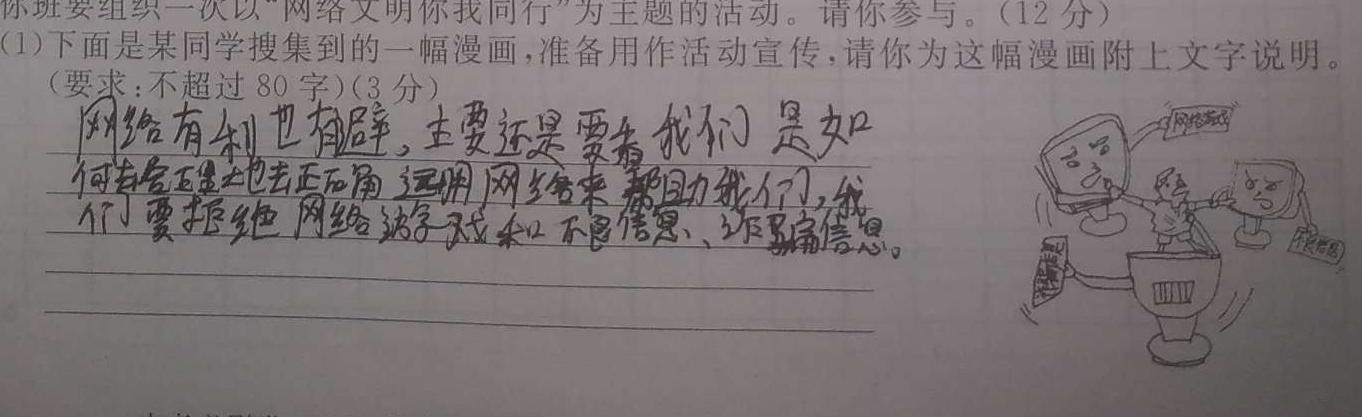 你班要组织一次以“网络文明你我同行”为主题的活动。请你参与。(12 分)
(1)下面是某同学搜集到的一幅漫画,准备用作活动宣传,请你为这幅漫画附上文字说明。
(要求:不超过 80 字)(3 分)
网络有利也有辟,主要还是要看我们是如
何去合理地去正确运用网络来帮助我们,我
们要拒绝网络游戏和不良信息、诈骗信息。
网络游戏
不良信息
诈骗信息